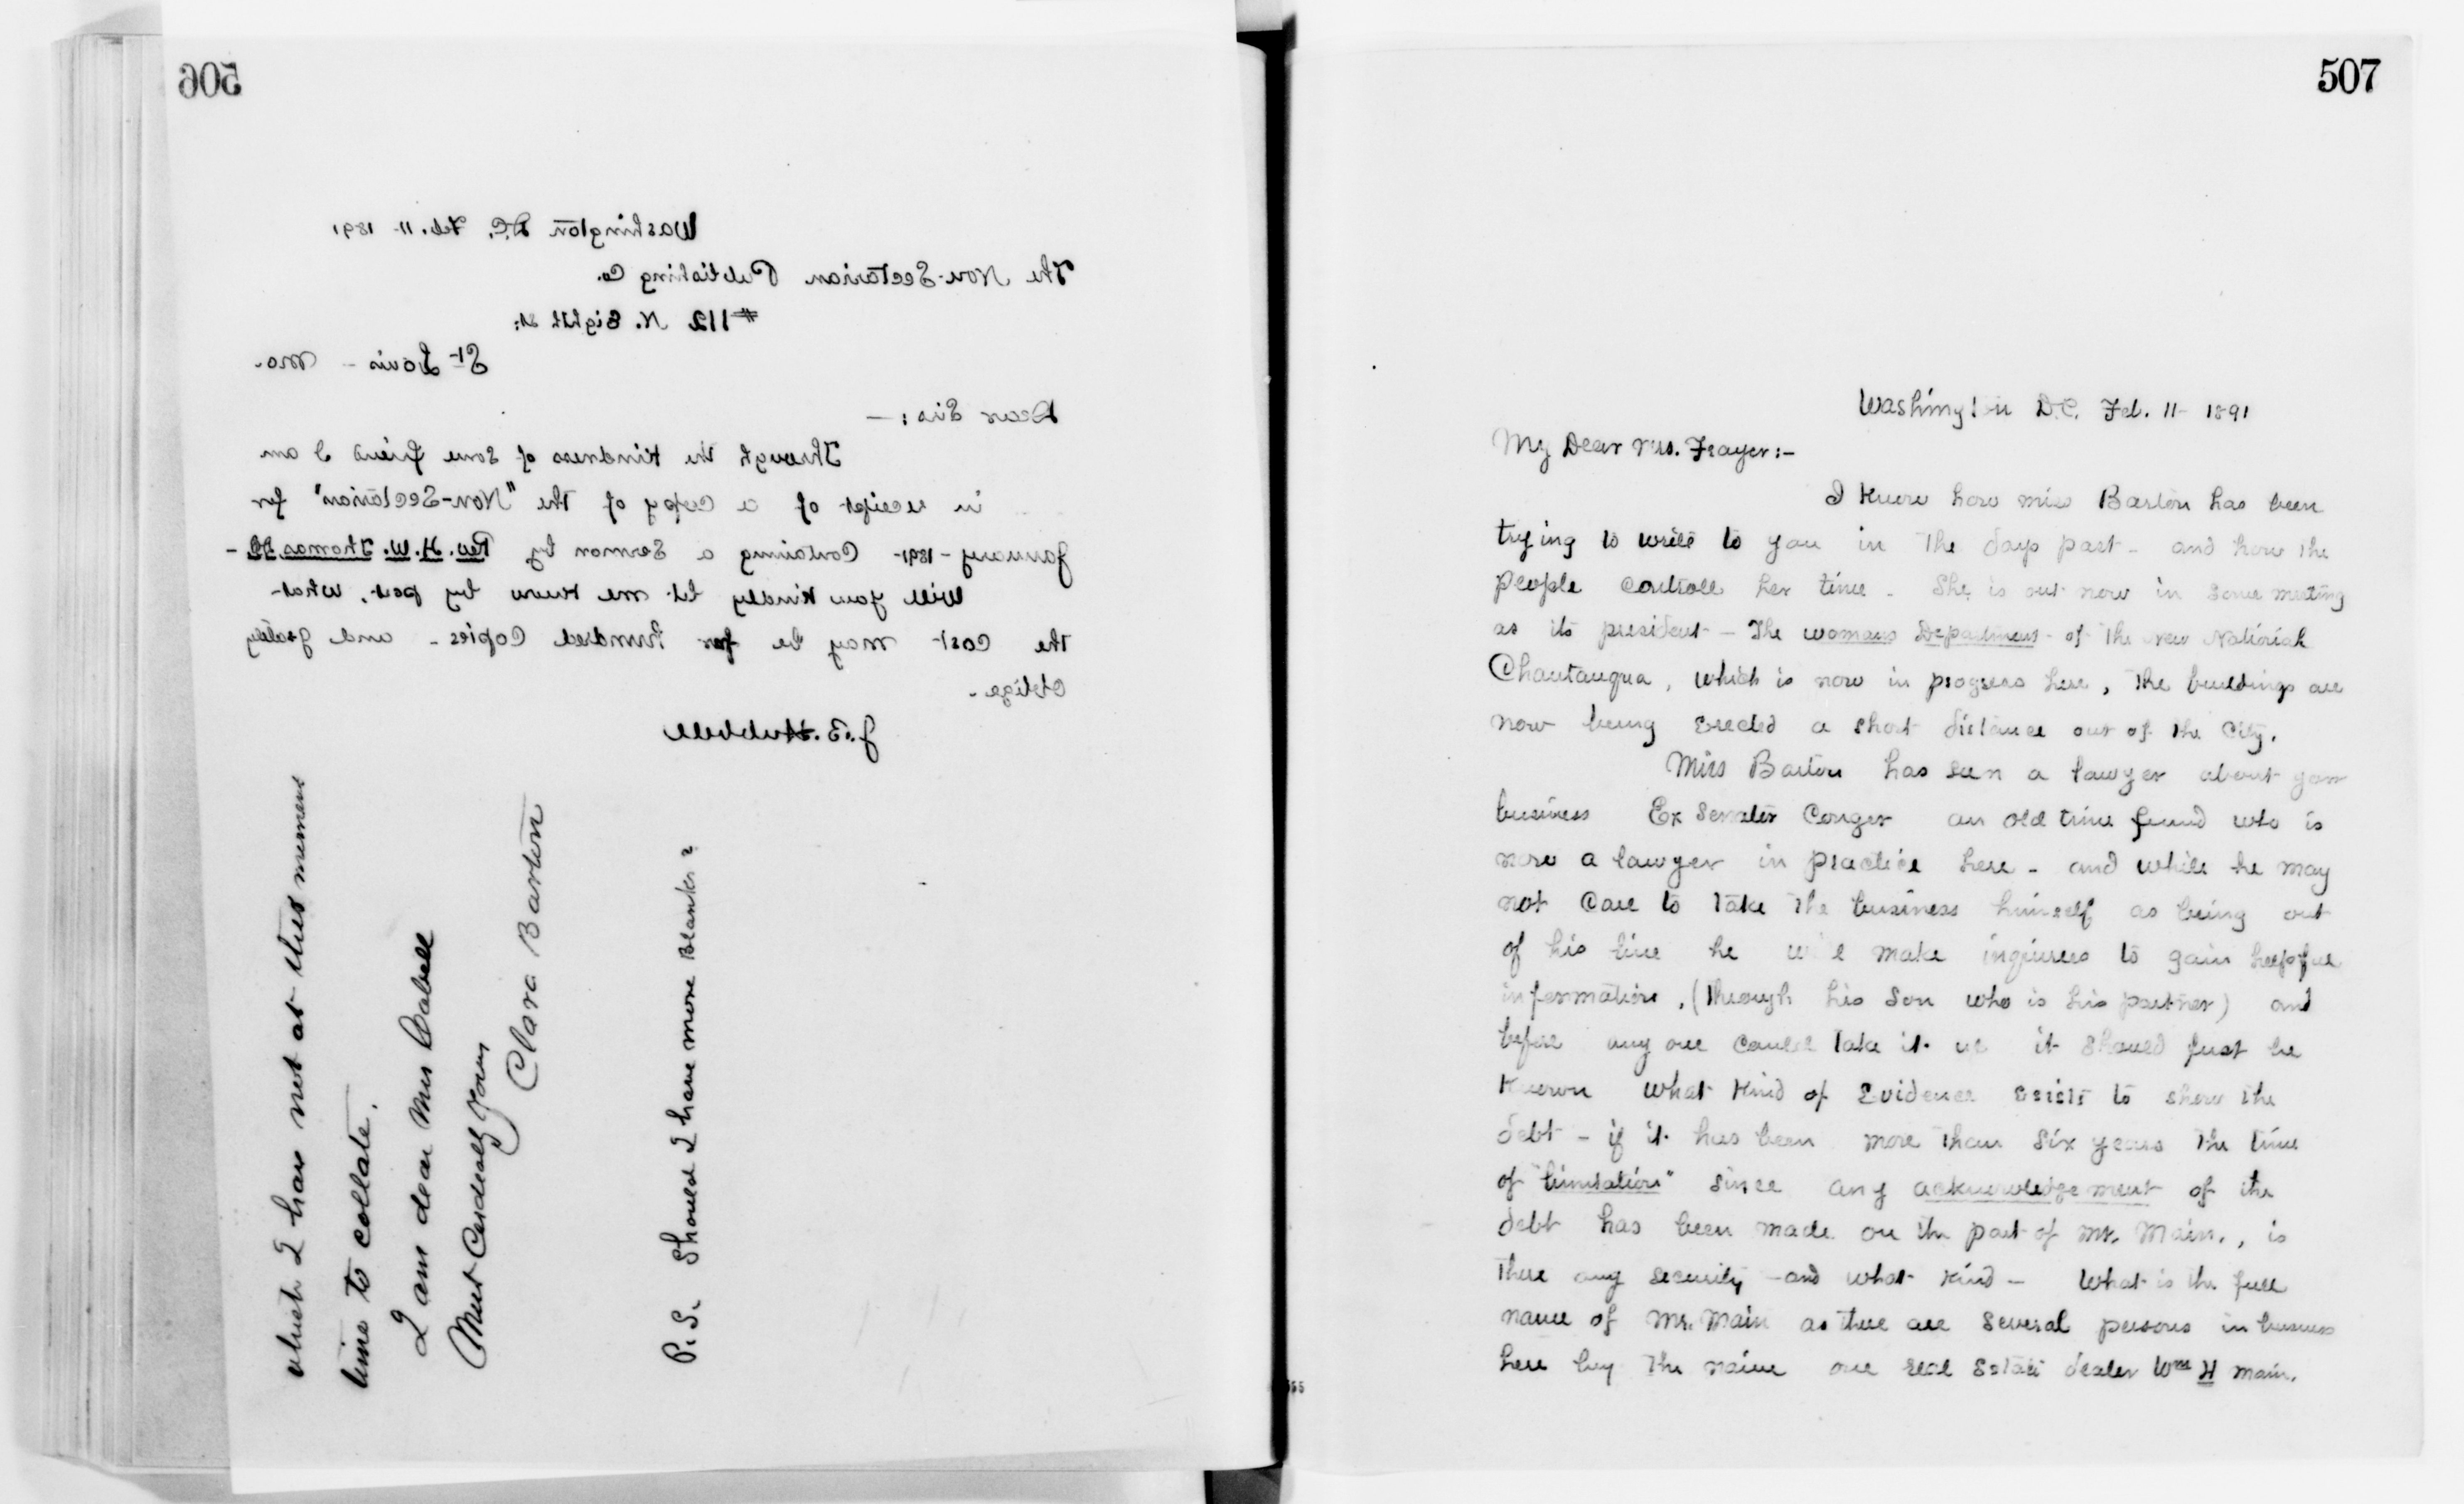 506
Washington D.C. Feb. 11- 1891
The Non-Sectarian Publishing Co.
#112 N. Eighth st:
St Louis - Mo.
Dear Sirs: —
Through the kindness of some friend I am
in receipt of a copy of the "Non-Sectarian" for
January - 1891 - Containing a Sermon by Rev. H. W. Thomas. DD. -
Will you kindly let me know by post, what-
the cost may be for hundred Copies - and greatly
oblige.
J. B. Hubbell
which I have not at this moment
time to collate.
I am dear Mrs Cabell
Most Cordially Yours
Clara Barton
P.S. Should I have more Blanks?
507
Washington D.C. Feb. 11- 1891
My Dear Mrs. Frayer:-
I know how miss Barton has been
trying to write to you in the days past - and how the
people controll her time - She is out now in some meeting
as its president - The womans Department - of the New National
Chautauqua, which is now in progress here, the buildings are
now being erected a short distance out of the City.
Miss Barton has seen a lawyer about your
business Ex Senator Conger an old time friend who is
now a lawyer in practice here - and while he may
not Care to take the business himself as being out
of his line he will make inquires to gain helpful
information, (through his son who is his partner) and
before any one could take it up it should first be
known what kind of Evidence exists to show the
debt - if it has been more than six years the time
of "limitation" since any acknowledgement of the
debt has been made on the part of Mr. Main., is
there any security - and what kind - What is the full
name of Mr. Main as there are several persons in business
here by the name one real Estate dealer Wm H Main.